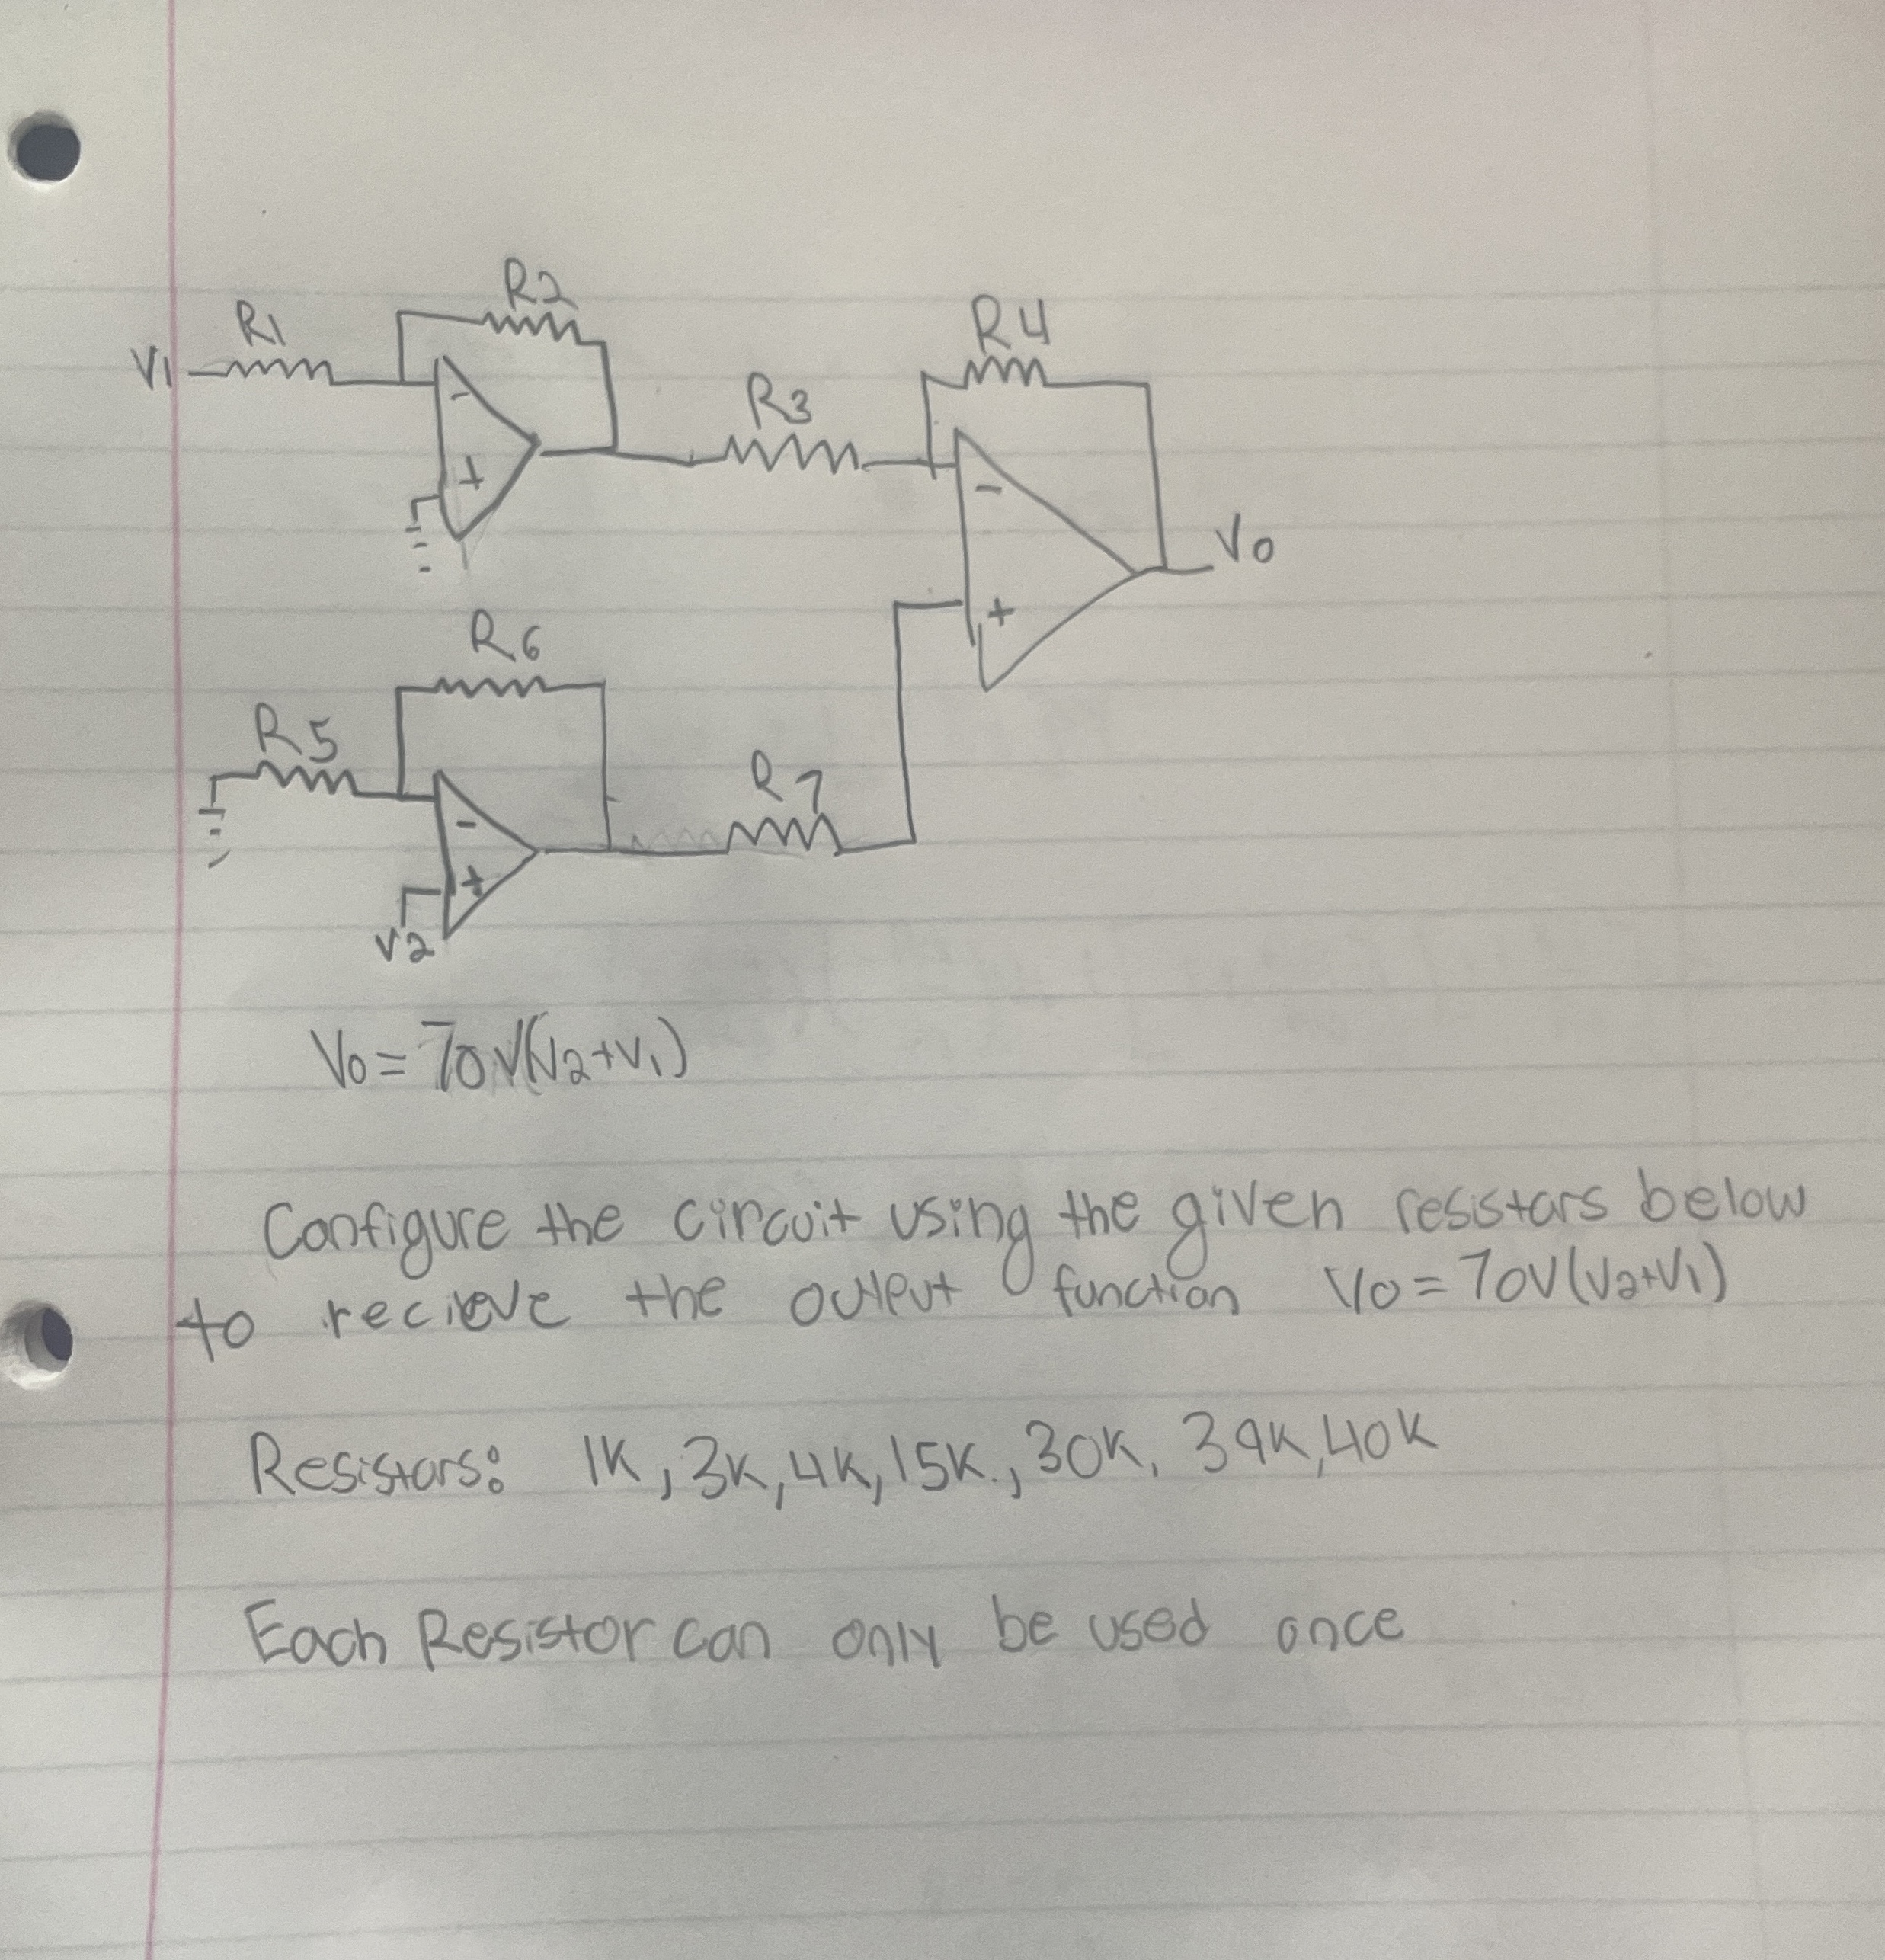 R2
R1
R4
V1
R3
-
+
-
Vo
+
R6
R5
R7
-
+
V2
Vo = 70V(V2+V1)
Configure the circuit using the given resistars below
to recieve the output function Vo = 70V(V2+V1)
Resistars: 1K, 3K, 4K, 15K., 30K, 39K, 40K
Each Resistor can only be used once